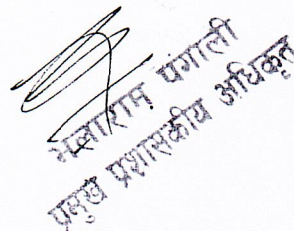 भलाराम पंगाली
प्रमुख प्रशासकीय अधिकृत